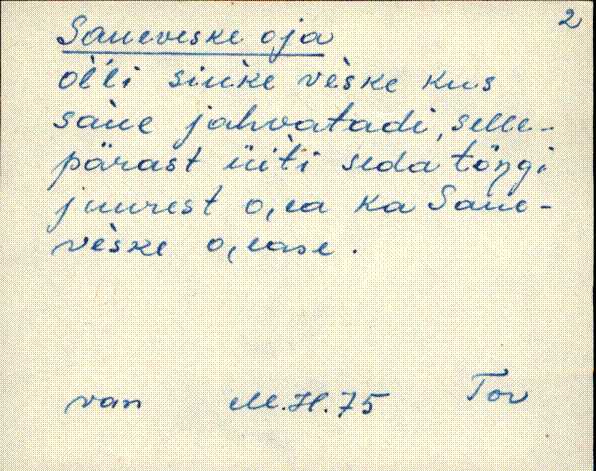 2
Saneveske oja
òlli sinke vèske kus
sàne jahvatadi, selle-
pärast üiti seda töngi
juurest o,ea ka Sane-
vèske o,ease.
van M.H.75 Tor